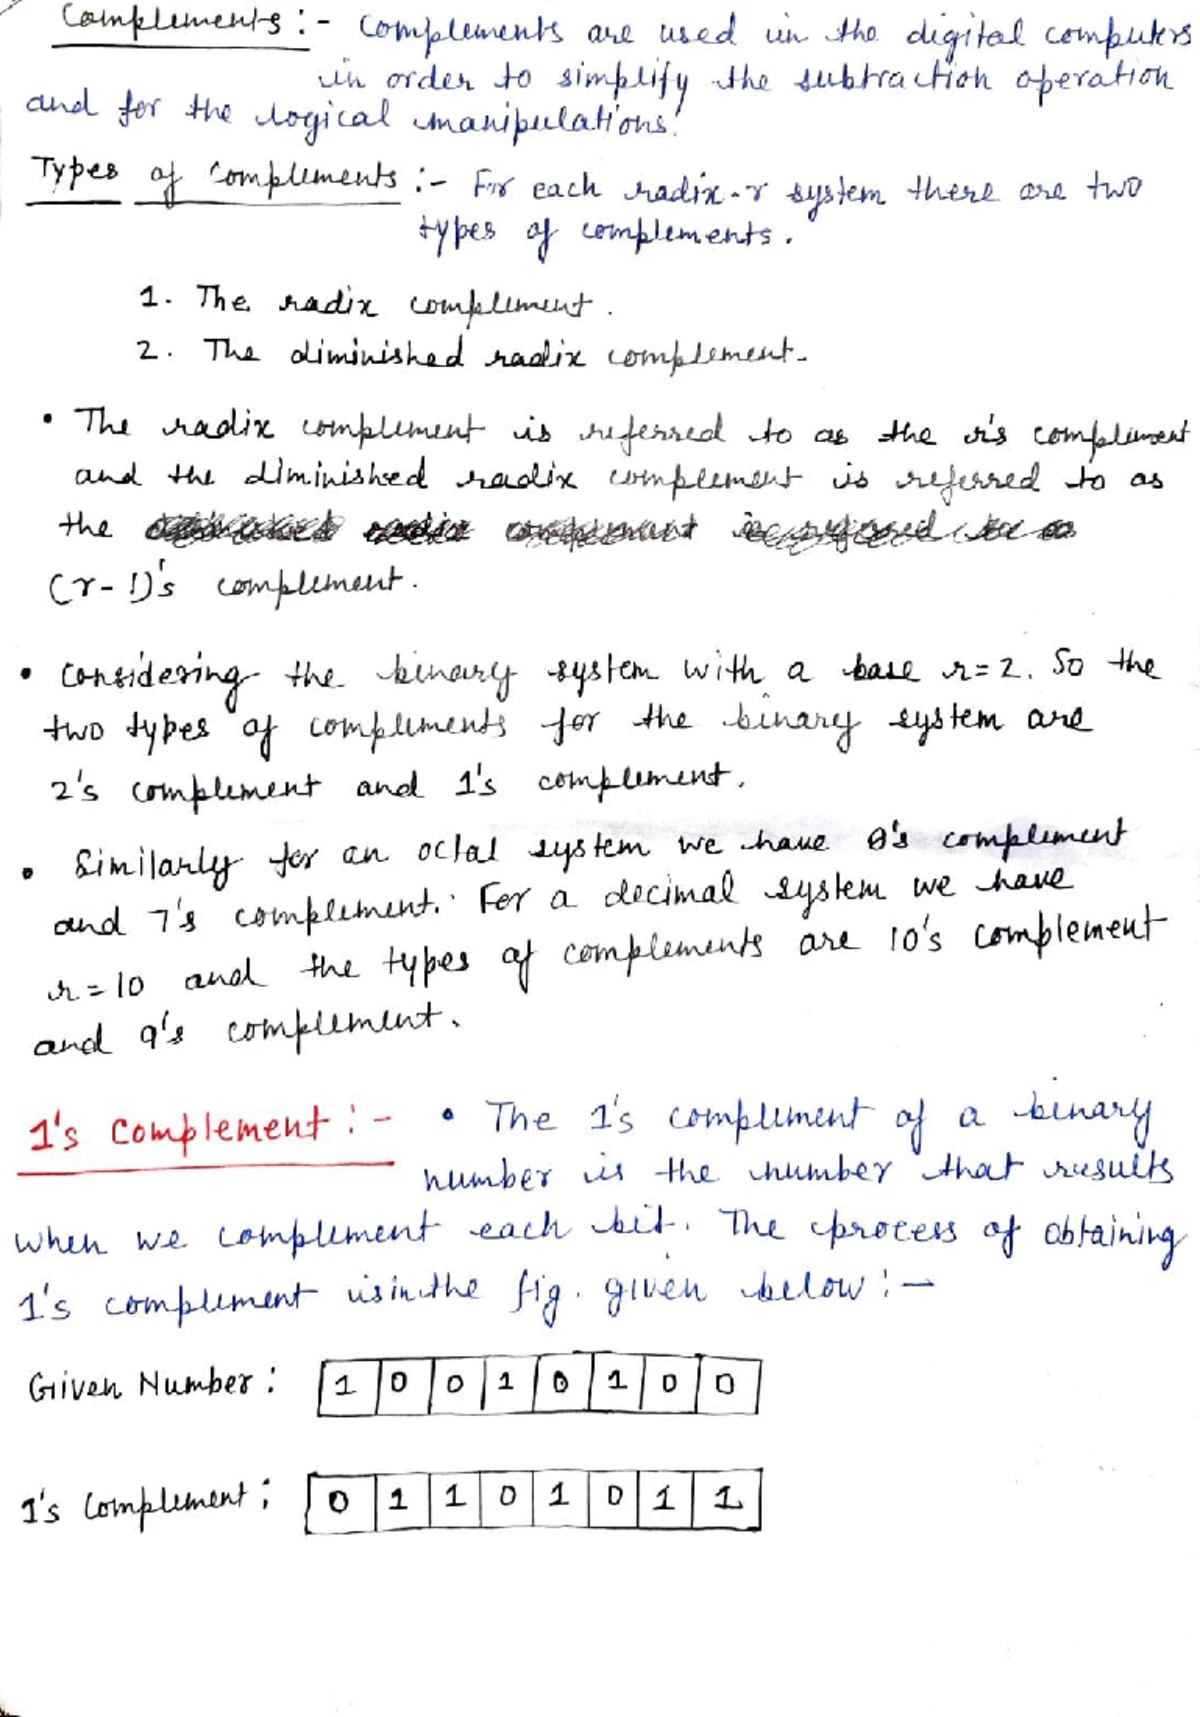 Complements :- Complements are used in the digital computers
in order to simplify the subtraction operation
and for the logical manipulations.
Types of complements :- For each radix-r system there are two
types of complements.
1. The radix complement.
2. The diminished radix complement.
• The radix complement is referred to as the r's compliment
and the diminished radix complement is referred to as
the
(r-1)'s complement.
• Considering the binary system with a base r=2. So the
two types of complements for the binary system are
2's complement and 1's complement.
• Similarly for an octal system we have 8's complement
and 7's complement. For a decimal system we have
r=10 and the types of complements are 10's complement
and 9's complement.
1's Complement :- • The 1's complement of a binary
number is the number that results
when we complement each bit. The process of obtaining
1's complement is in the fig. given below :-
Given Number : 1 0 0 1 0 1 0 0
1's Complement : 0 1 1 0 1 0 1 1